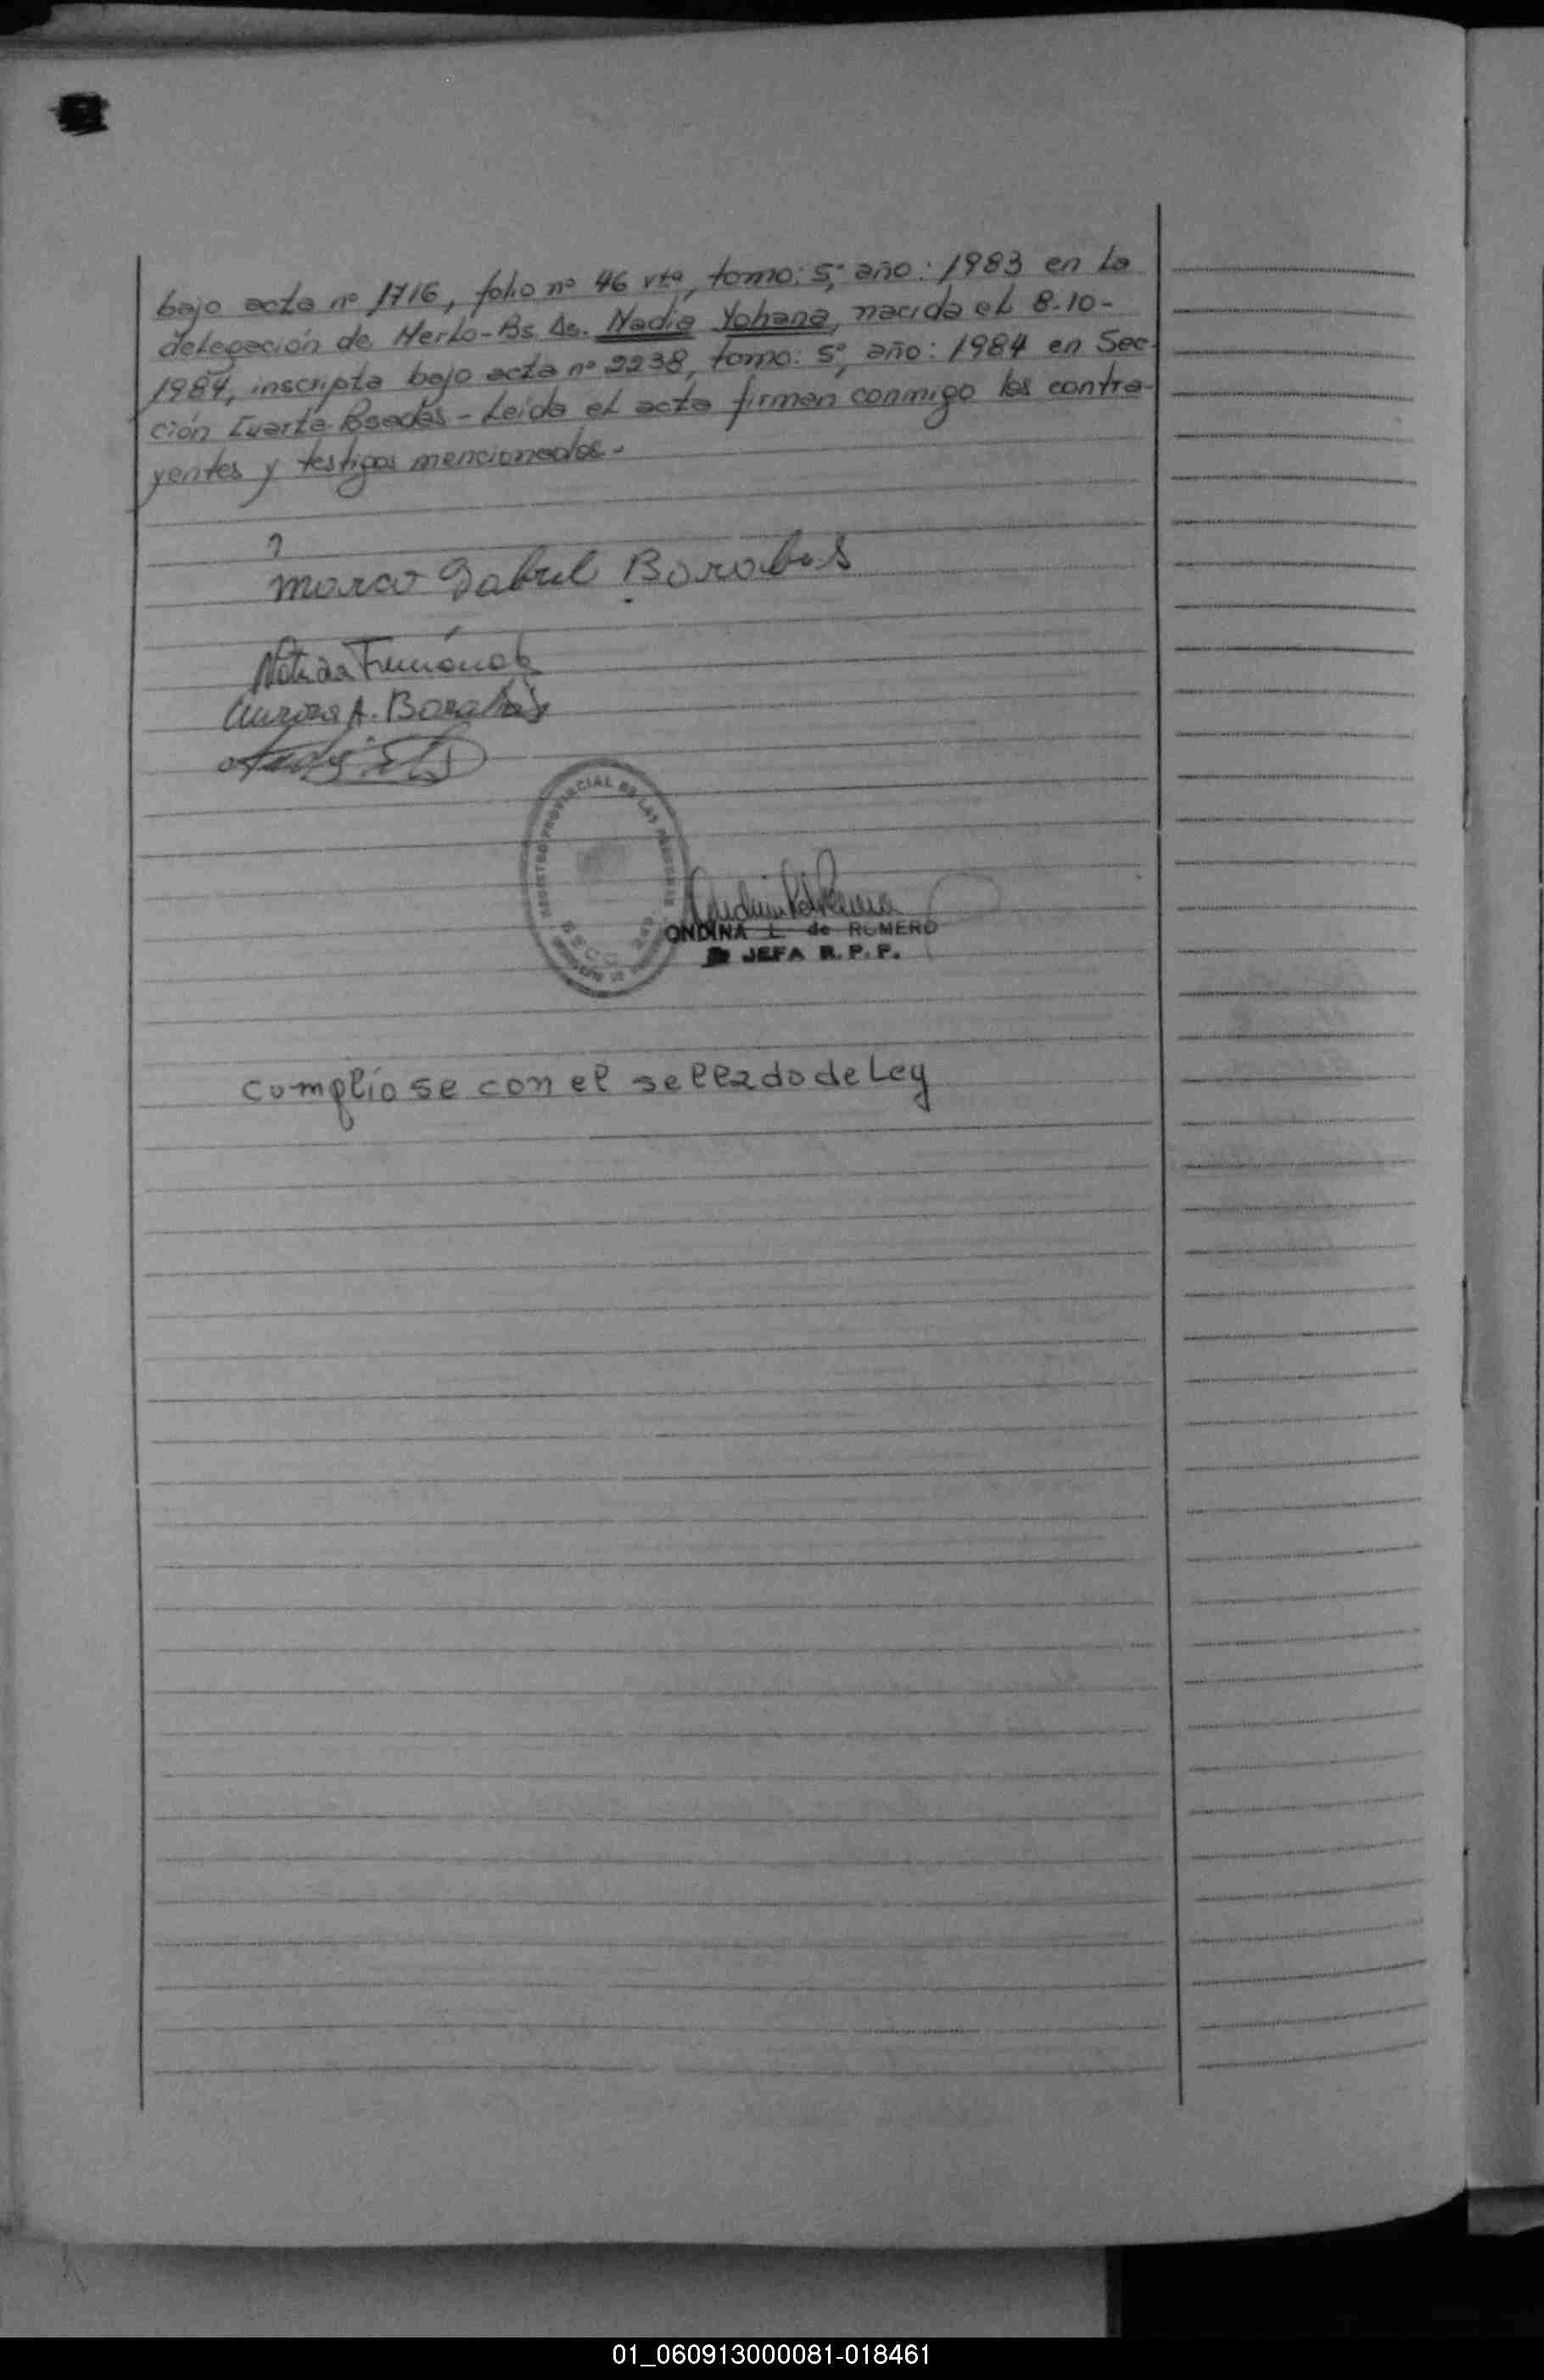 bajo acta nº 1716, folio nº 46 vta, tomo: 5º, año: 1983 en la
delegación de Merlo-Bs. As. Nadia Yohana, nacida el 8-10-
1984, inscripta bajo acta nº 2238, tomo: 5º, año: 1984 en Sec-
ción Cuarta-Posadas - Leída el acta firman conmigo los contra-
yentes y testigos mencionados.-
Marco Gabriel Barabas
Aurora A. Barabás
REGISTRO PROVINCIAL DE LAS PERSONAS
SECC.
ONDINA L. de ROMERO
JEFA R. P. P.
Cumplíose con el sellado de Ley
01_060913000081-018461